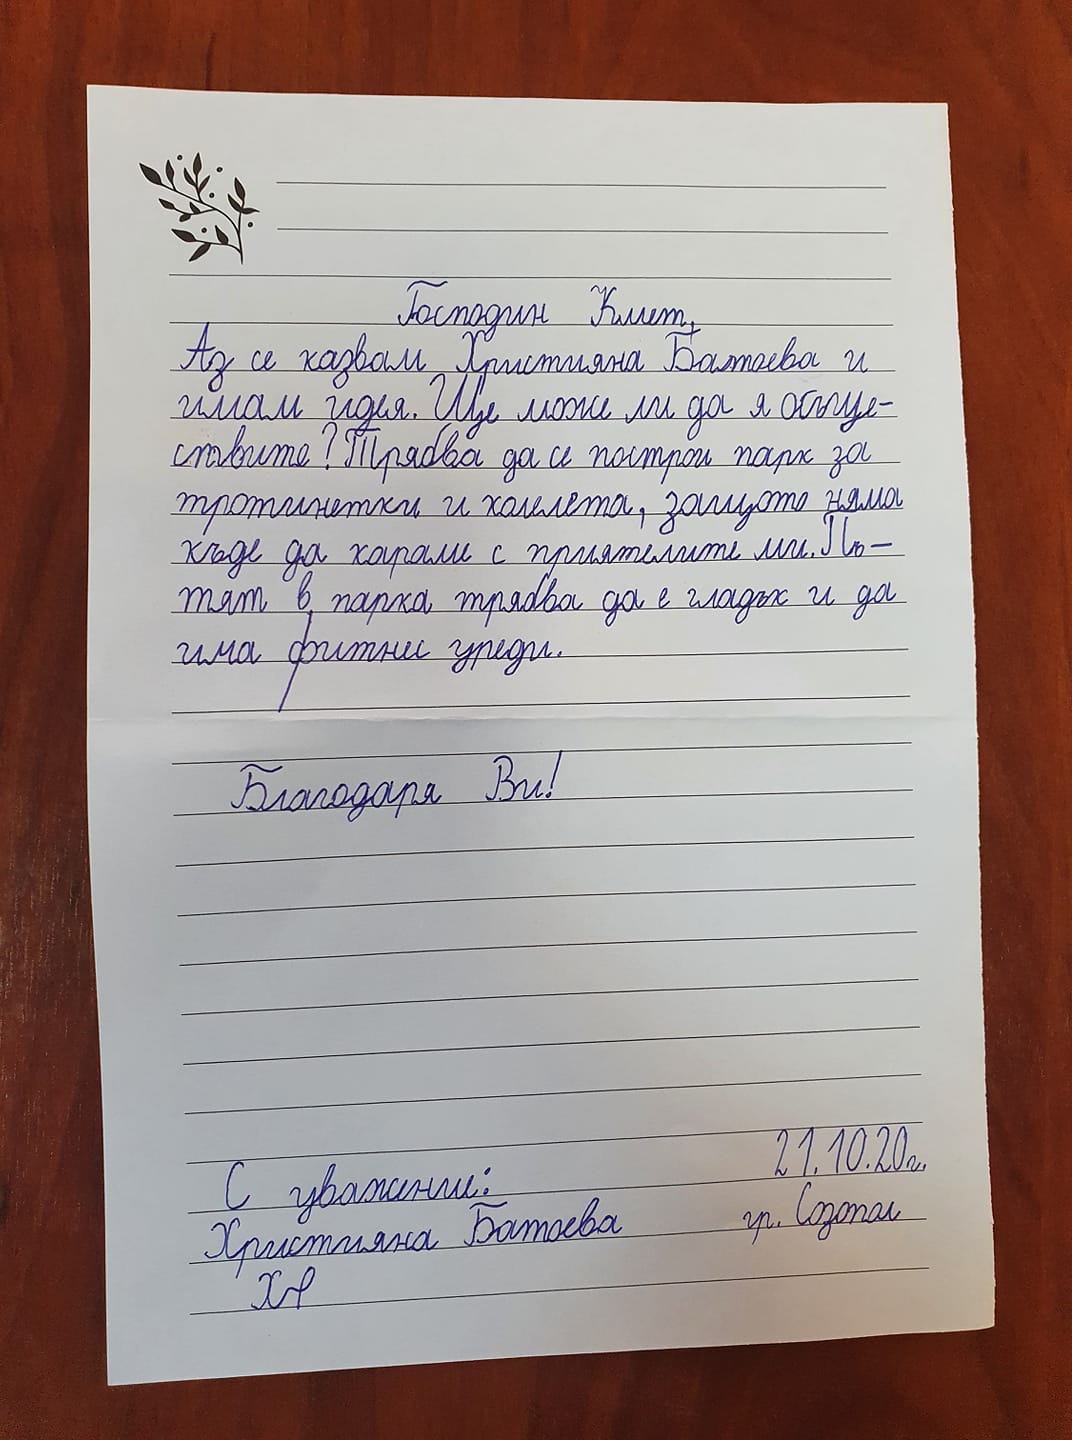 Господин Кмет,
Аз се казвам Християна Батоева и
имам идея. Ще може ли да я обще-
ствите? Трябва да се построи парк за
тротинетки и колелета, защото няма
къде да караме с приятелите ми. Пъ-
тят в парка трябва да е гладък и да
има фитнес уреди.
Благодаря Ви!
21.10.20г.
С уважение:
гр. Созопол
Християна Батоева